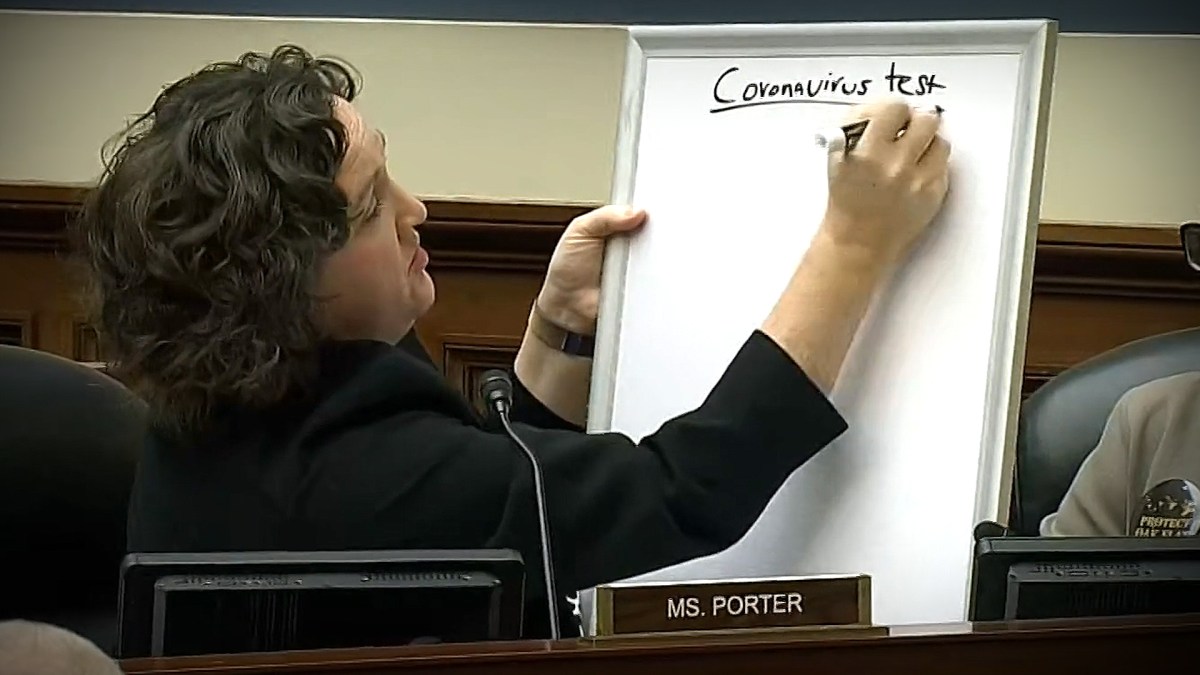 Coronavirus test
MS. PORTER
PROTECT
OAK FLAT